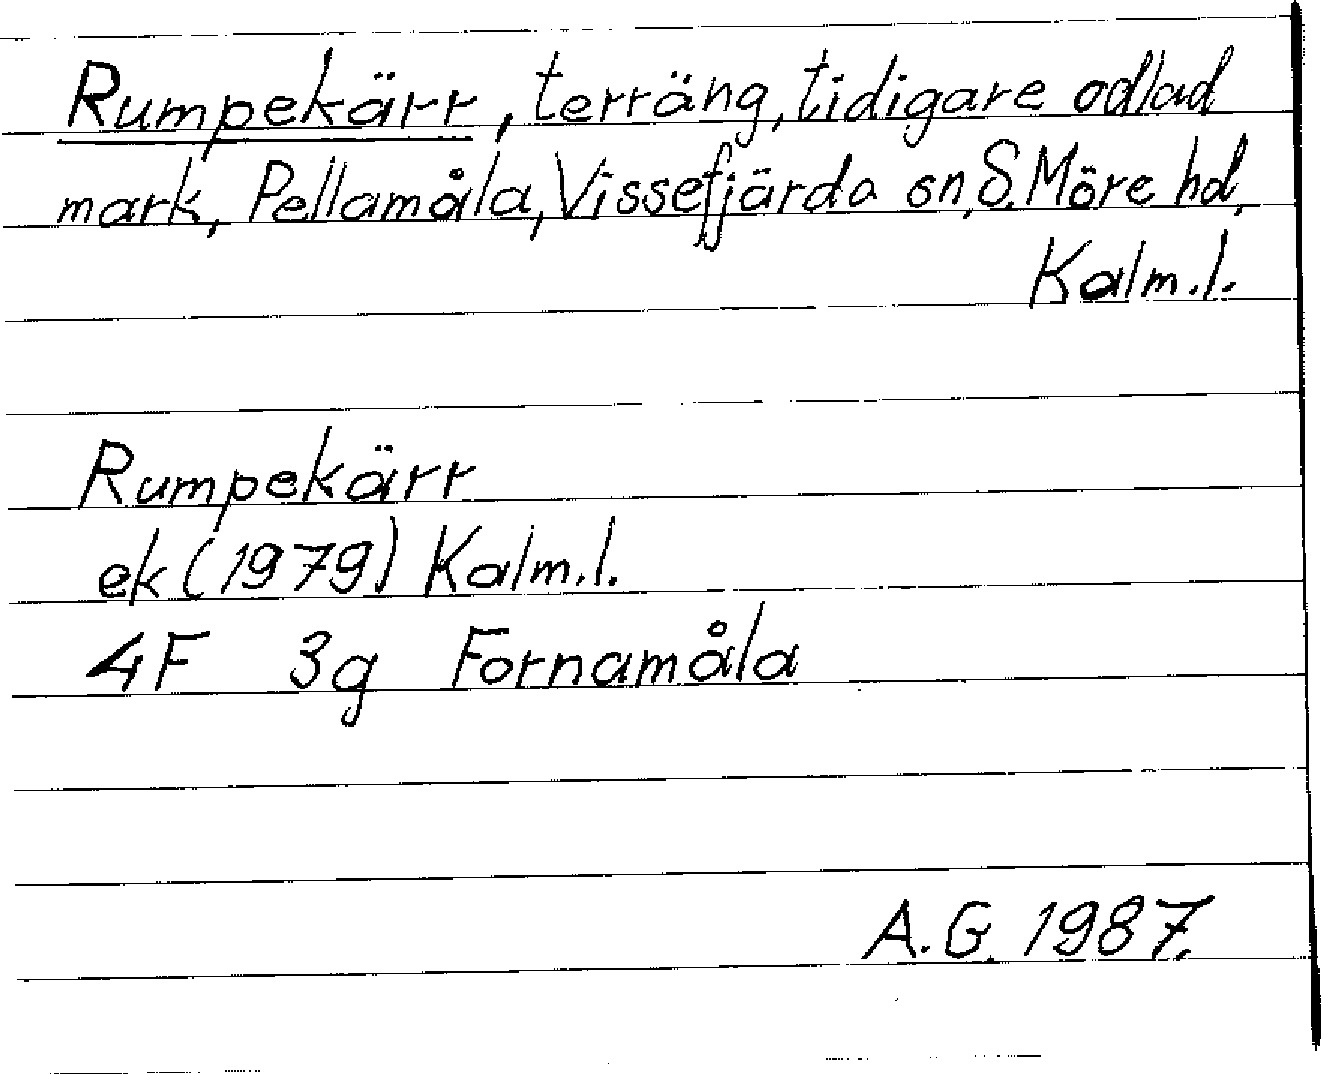 Rumpekärr, terräng, tidigare odlad
mark, Pellamåla, Vissefjärda sn, S. Möre hd,
Kalm.l.
Rumpekärr
ek (1979) Kalm.l.
4F 3g Fornamåla
A.G. 1987.